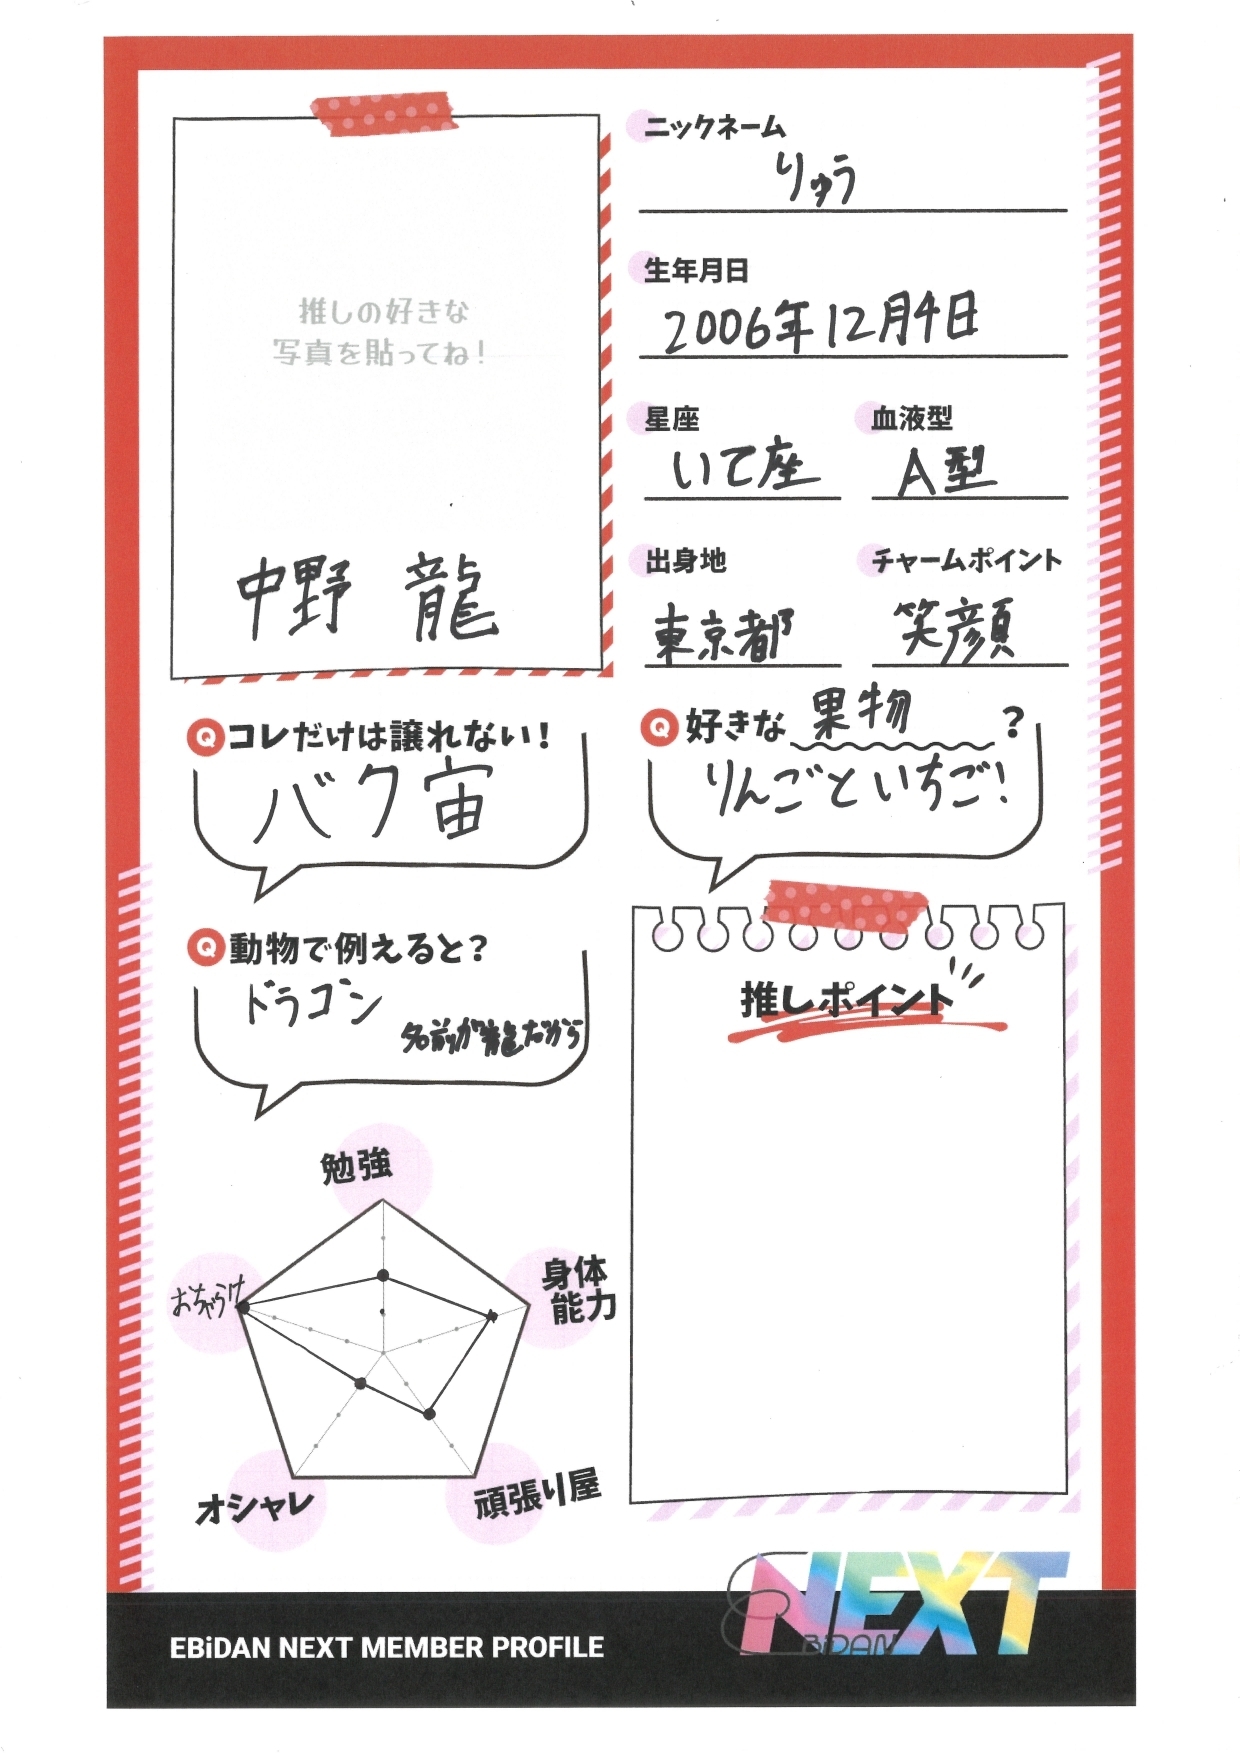 ニックネーム
りゅう
推しの好きな
写真を貼ってね！
中野 龍
生年月日
2006年12月4日
星座
いて座
血液型
A型
出身地
東京都
チャームポイント
笑顔
Q コレだけは譲れない！
バク宙
Q 好きな 果物 ？
りんごといちご！
Q 動物で例えると？
ドラゴン
名前が龍だから
推しポイント
勉強
身体
能力
おちゃらけ
オシャレ
頑張り屋
EBiDAN NEXT MEMBER PROFILE
NEXT
EBiDAN